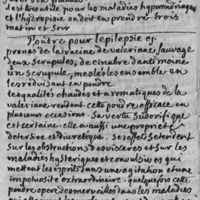 est bon utile pour les maladies hypocondriaques
et l'hydropisie on doit en prendre trois
matin et soir
Poudre pour l'epilepsie &c.
prenes de la racine de valeriane sauvage
deux scrupules, de cinabre d'antimoine
un scrupule, meslés les ensemble en
les reduisant en poudre
les qualités chaudes et aromatiques de la
valeriane rendent cette poudre efficace en
plusieurs occasions. sa vertu sudorifique
est certaine. elle a aussi une propriété
detersive et diuretique. ses effets s'etendent
sur les obstructions des visceres et sur les
maladies hysteriques et convulsives qui
mettent les esprits dans une agitation d'une
impetuosité extraordinaire. quelquefois cette
poudre opere des merveilles dans les maladies